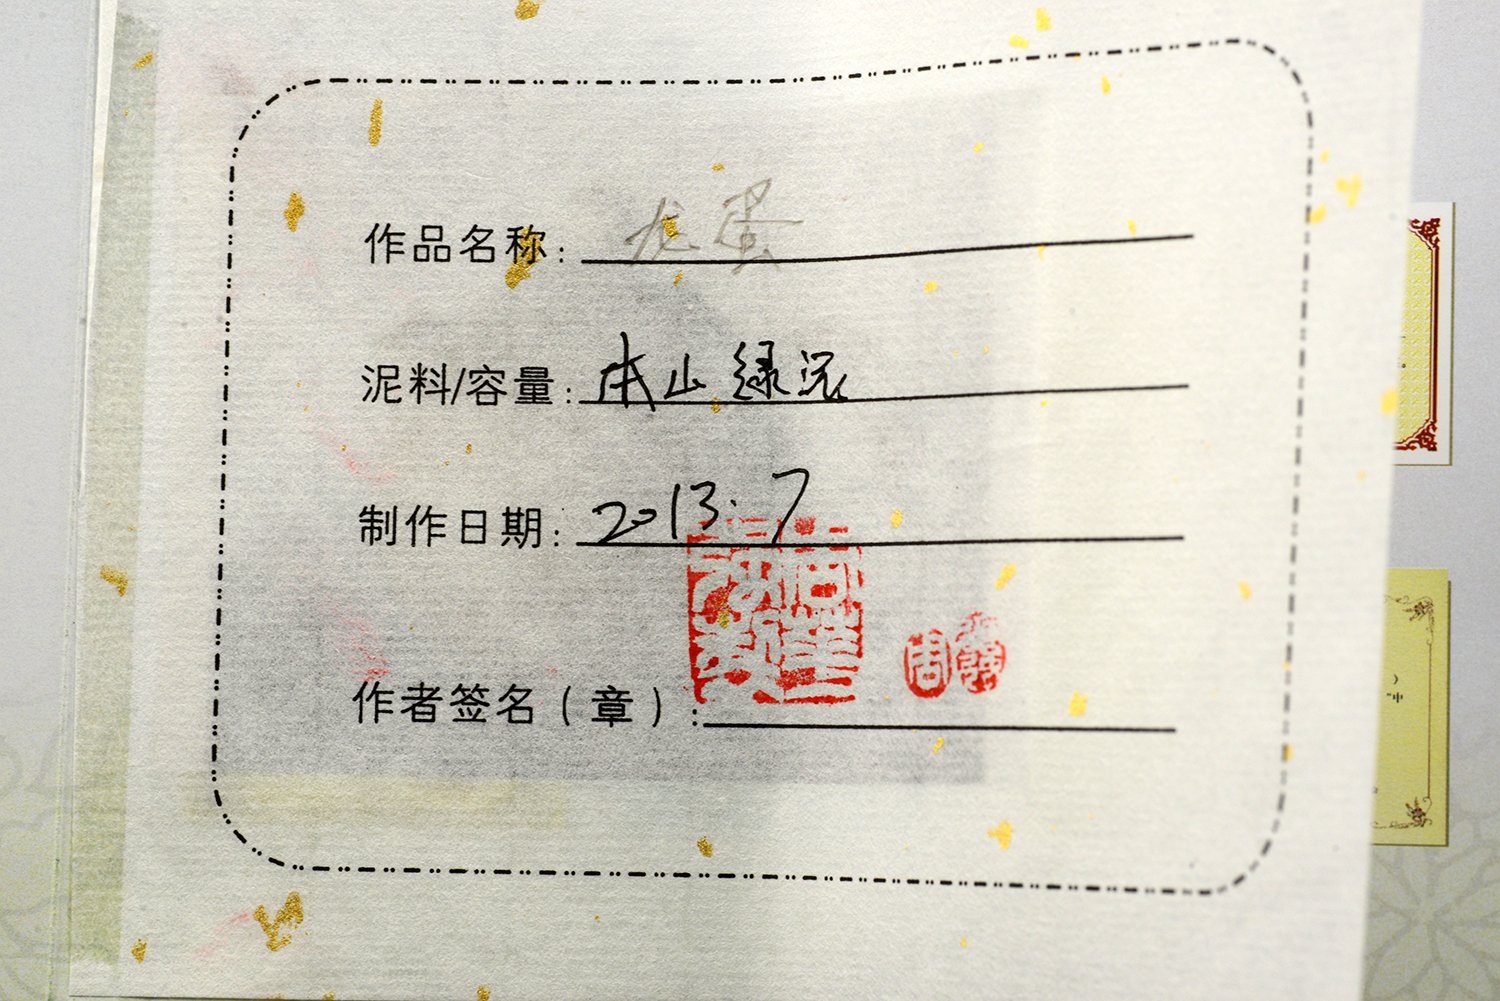 作品名称：龙蛋
泥料/容量：本山绿泥
制作日期：2013.7
作者签名（章）：
周